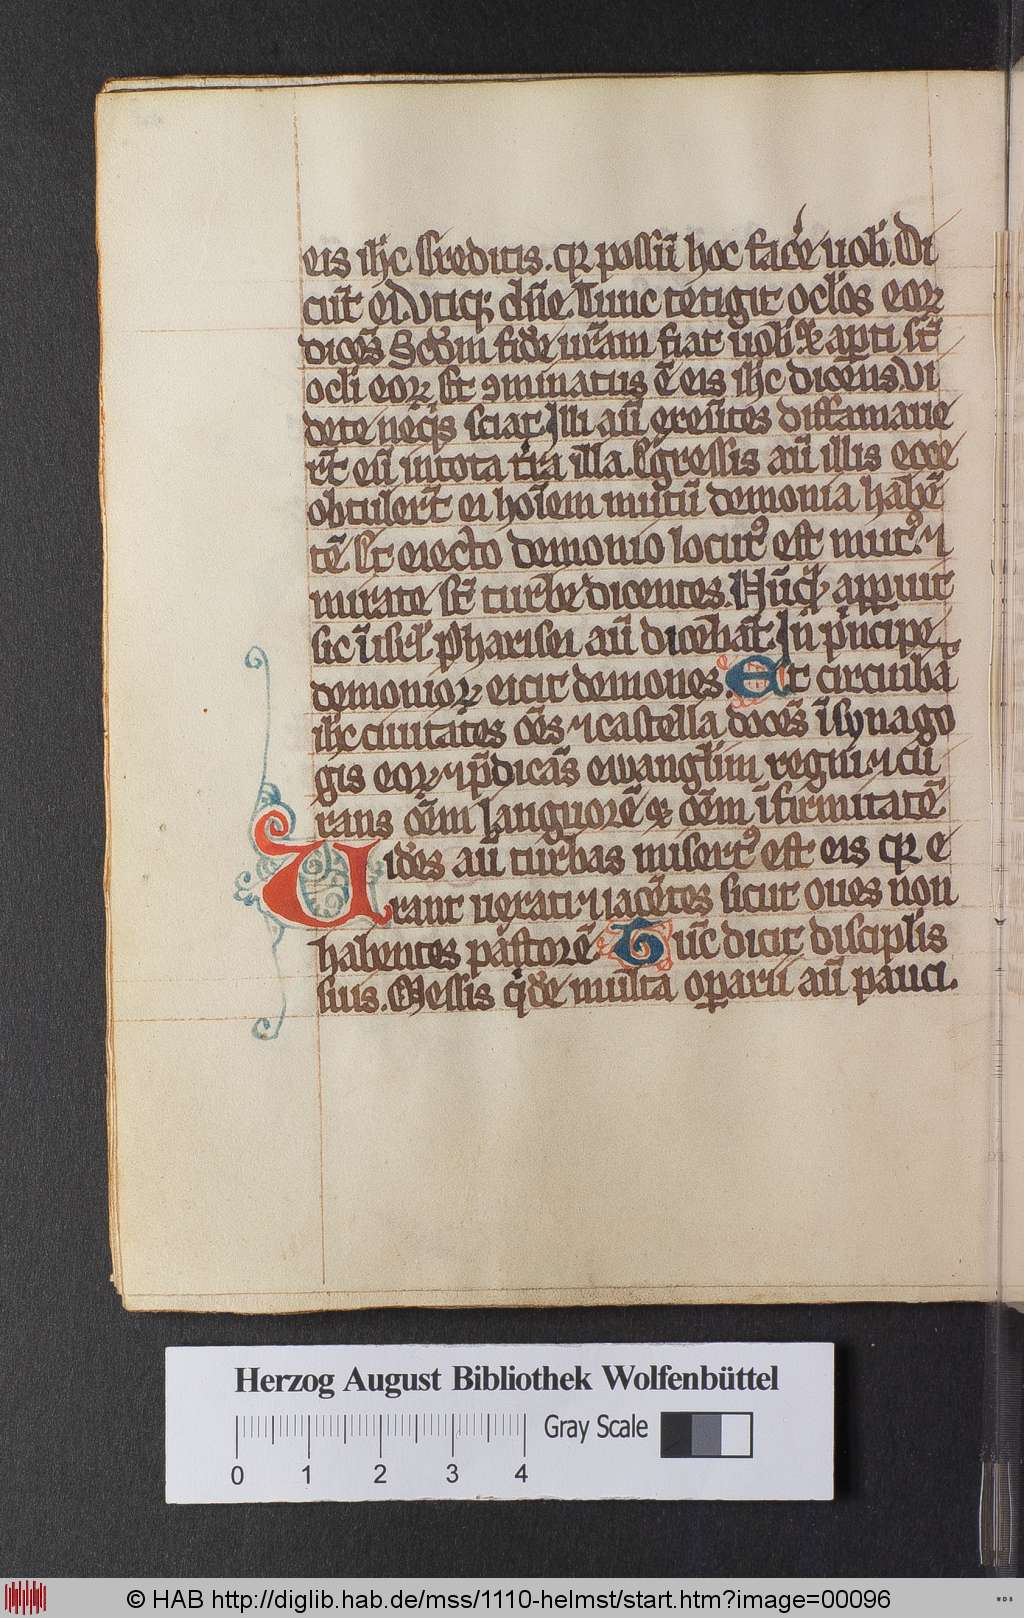 eis ih̅c. Creditis. qꝛ possū hoc fac̅e uob̅. Di
cūt ei. Vtiqꝫ dn̅e. Tunc tetigit oc̅los eoꝝ
dicēs Scd̅m fidē ur̅am fiat uob̅. ⁊ aꝑti st̅
oc̅li eoꝝ ⁊ ꝯminatus ē eis ih̅c dicens. Vi
dete neq̅s sciat. Illi au̅ exeūtes diffamaue
rt̅ eū in tota tr̅a illa. Egressis au̅ illis ecce
obtulert̅ ei hoı̅em mutū demonia habē
tē ⁊ eiecto demonio locutꝰ est mutꝰ. ⁊
mirate st̅ turbe dicentes. Nūq̅ apparuit
sic ī isrl̅. Pharisei au̅ dicebāt. In p̅ncipe
demonioꝝ eicit demones. Et circuibā
ih̅c ciuitates oēs ⁊ castella docēs ī synago
gis eoꝝ ⁊ p̅dicās ewangl̅ium regni ⁊ cu
rans oēm languorē ⁊ oēm īfirmitatē
Uidēs au̅ turbas misertꝰ est eis qꝛ e
rant uexati ⁊ iacētes sicut oues non
habentes pastorē. Tūc dicit discipl̅is
suis. Messis q̅dē multa oꝑarii au̅ pauci.
Herzog August Bibliothek Wolfenbüttel
0 1 2 3 4 Gray Scale
© HAB http://diglib.hab.de/mss/1110-helmst/start.htm?image=00096